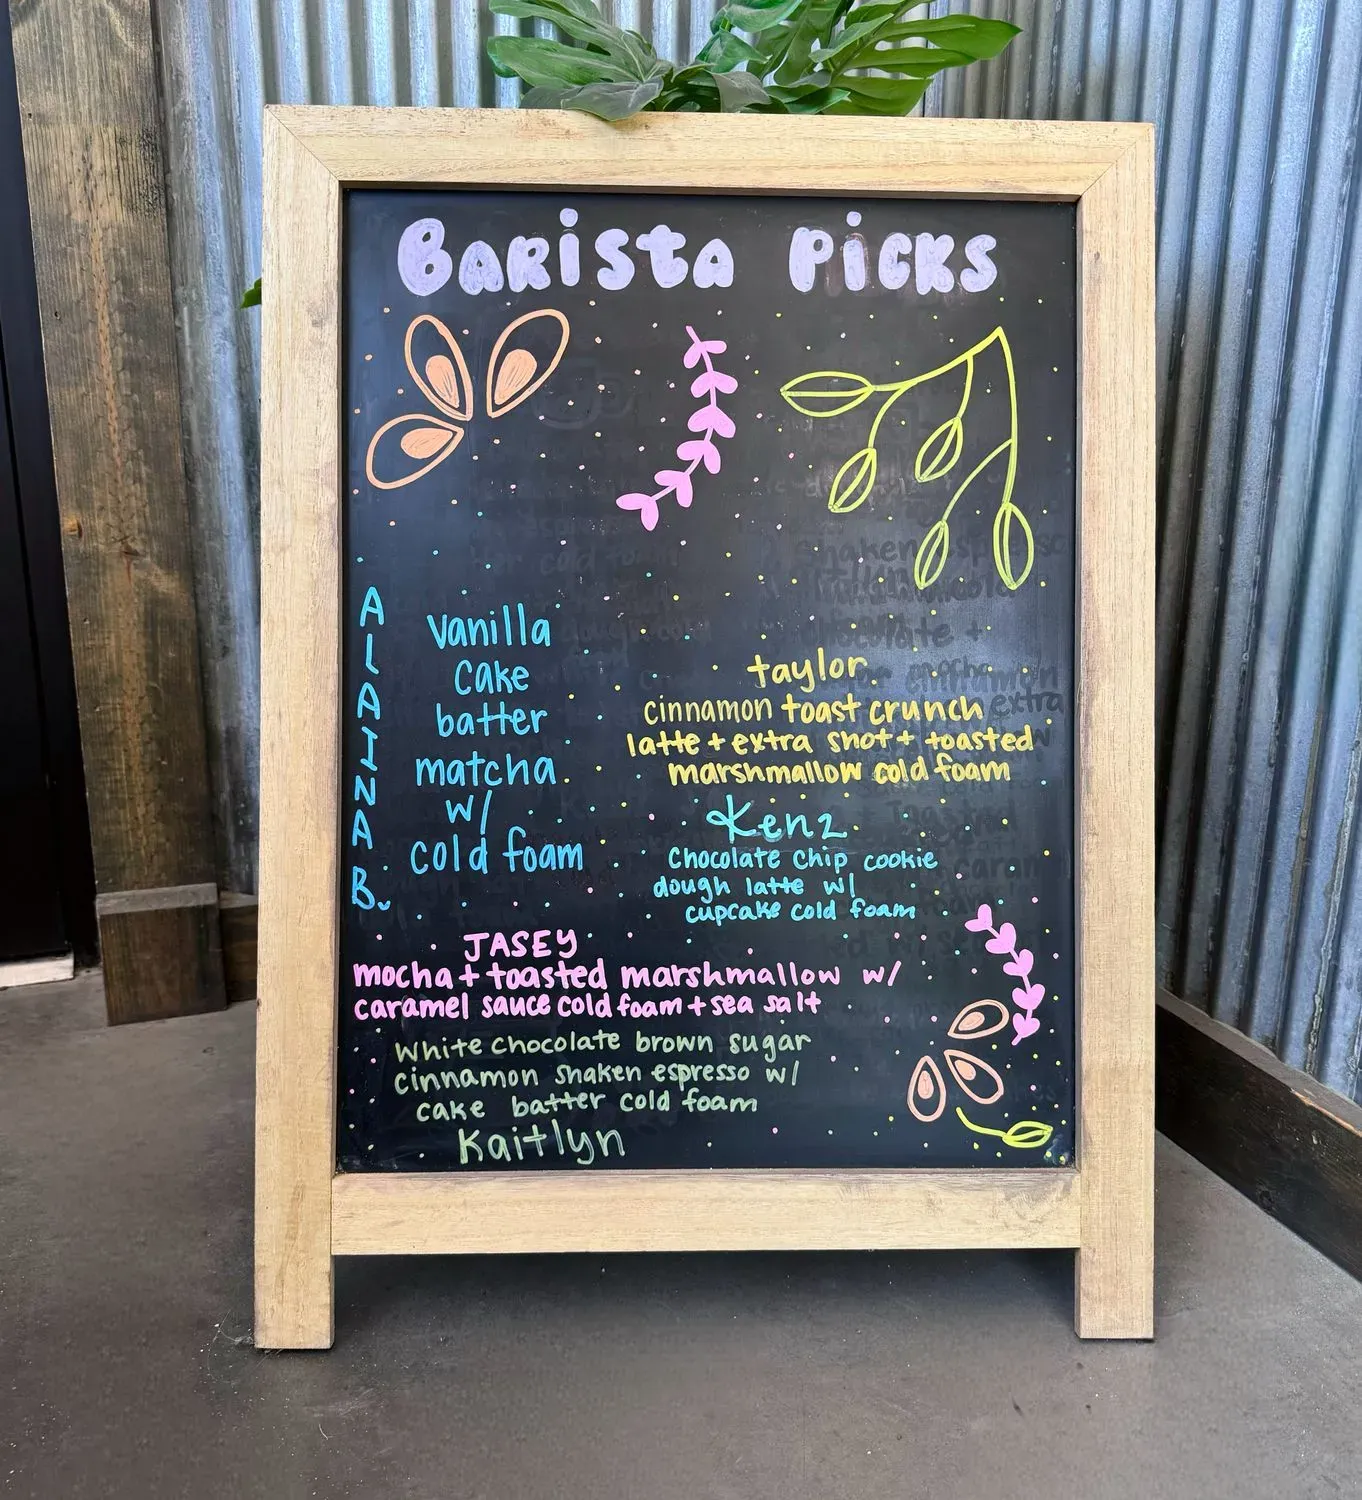 BARista PiCKS
ALAINA B.
vanilla
cake
batter
matcha
w/
cold foam
taylor
cinnamon toast crunch
latte + extra shot + toasted
marshmallow cold foam
Kenz
Chocolate chip cookie
dough latte w/
cupcake cold foam
JASEY
mocha + toasted marshmallow w/
caramel sauce cold foam + sea salt
white chocolate brown sugar
cinnamon shaken espresso w/
cake batter cold foam
Kaitlyn